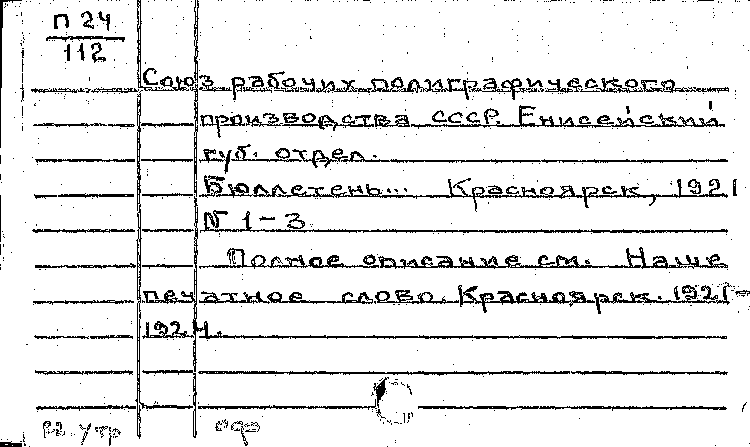 П 24
112
Союз рабочих полиграфического
производства СССР. Енисейский
губ. отдел.
Бюллетень... Красноярск, 1921
№ 1-3
Полное описание см. Наше
печатное слово. Красноярск. 1921-
1924.
утр